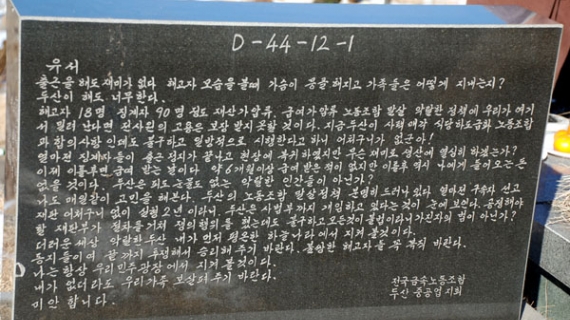 D-44-12-1
유서
출근을 해도 재미가 없다. 해고자 모습을 볼때 가슴이 뭉클해지고 가족들은 어떻게 지내는지?
두산이 해도 너무한다.
해고자 18명 징계자 90명 정도 재산가압류, 급여가압류 노동조합 말살 악랄한 정책에 우리가 여기
서 밀려 난다면 전사원의 고용은 보장 받지 못할 것이다. 지금 두산이 사택 매각 식당하도급화 노동조합
과 합의사항 인데도 불구하고 일방적으로 시행한다고 하니 어처구니가 없군아!
얼마전 징계자들이 출근 정지가 끝나고 현장에 복귀하였지만 무슨 재미로 생산에 열심히 하겠는가?
이제 이틀후면 급여 받는 날이다 약 6개월이상 급여 받은 적이 없지만 이틀후 역시 나에게 들어오는 돈
없을 것이다. 두산은 피도 눈물도 없는 악랄한 인간들이 아닌가?
나도 매일같이 고민을 해본다. 두산의 노동조합 말살정책 분명히 드러나 있다 얼마전 구속자 선고
재판 어처구니 없이 실형 2년 이라니. 두산은 사법부까지 개입하고 있다는것이 눈에 보인다. 공정해야
할 재판부가 절차를거쳐 쟁의행위를 했는데도 불구하고 모든것이 불법이라니 가진자의 법이 아닌가?
더러운 세상 악랄한 두산 내가 먼저 평온한 하늘나라에서 지켜 볼것이다.
동지들이여 끝까지 투쟁해서 승리해주기 바란다. 불쌍한 해고자들 꼭 복직 바란다.
나는 항상 우리 민주광장에서 지켜 볼것이다.
내가 없더라도 우리가족 보살펴주기 바란다.
미안 합니다.
전국금속노동조합
두산 중공업 지회